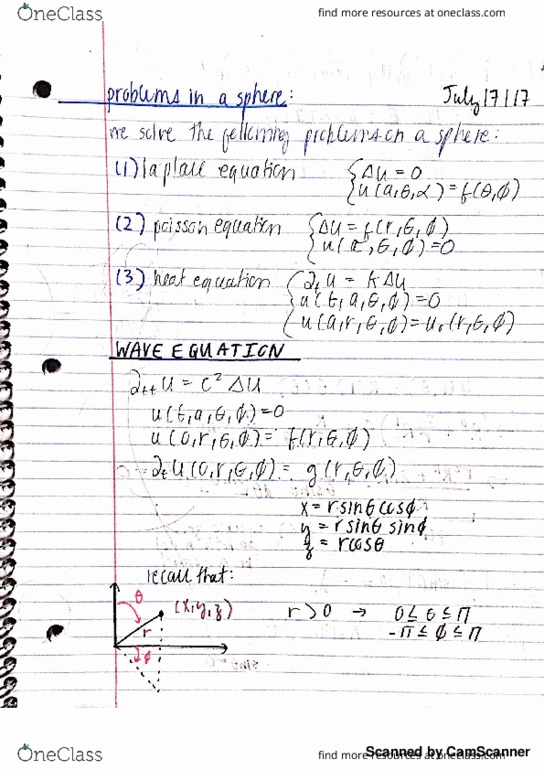 OneClass
find more resources at oneclass.com
problems in a sphere:
July 17/17
we solve the following problems on a sphere:
(1) laplace equation { Δu = 0
u(a,θ,α) = f(θ,ϕ)
(2) poisson equation { Δu = f(r,θ,ϕ)
u(a,θ,ϕ) = 0
(3) heat equation { ∂ₜu = kΔu
u(t,a,θ,ϕ) = 0
u(a,r,θ,ϕ) = u₀(r,θ,ϕ)
WAVE EQUATION
∂ₜₜu = c² Δu
u(t,a,θ,ϕ) = 0
u(0,r,θ,ϕ) = f(r,θ,ϕ)
∂ₜu(0,r,θ,ϕ) = g(r,θ,ϕ)
x = rsinθcosϕ
y = rsinθ sinϕ
z = rcosθ
recall that:
θ
(x,y,z)
r
ϕ
r > 0 → 0 ≤ θ ≤ π
-π ≤ ϕ ≤ π
OneClass
find more resources at oneclass.com
Scanned by CamScanner